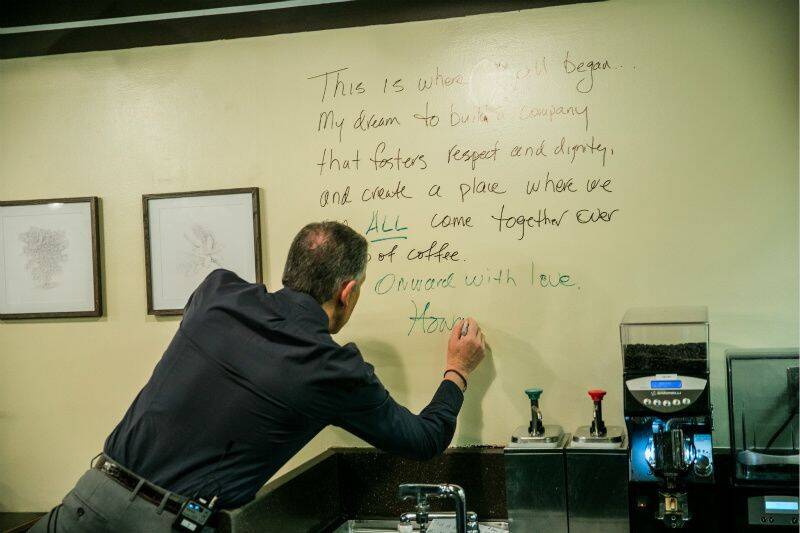 This is where all began...
My dream to build a company
that fosters respect and dignity,
and create a place where we
ALL come together over
of coffee.
Onward with love.
How